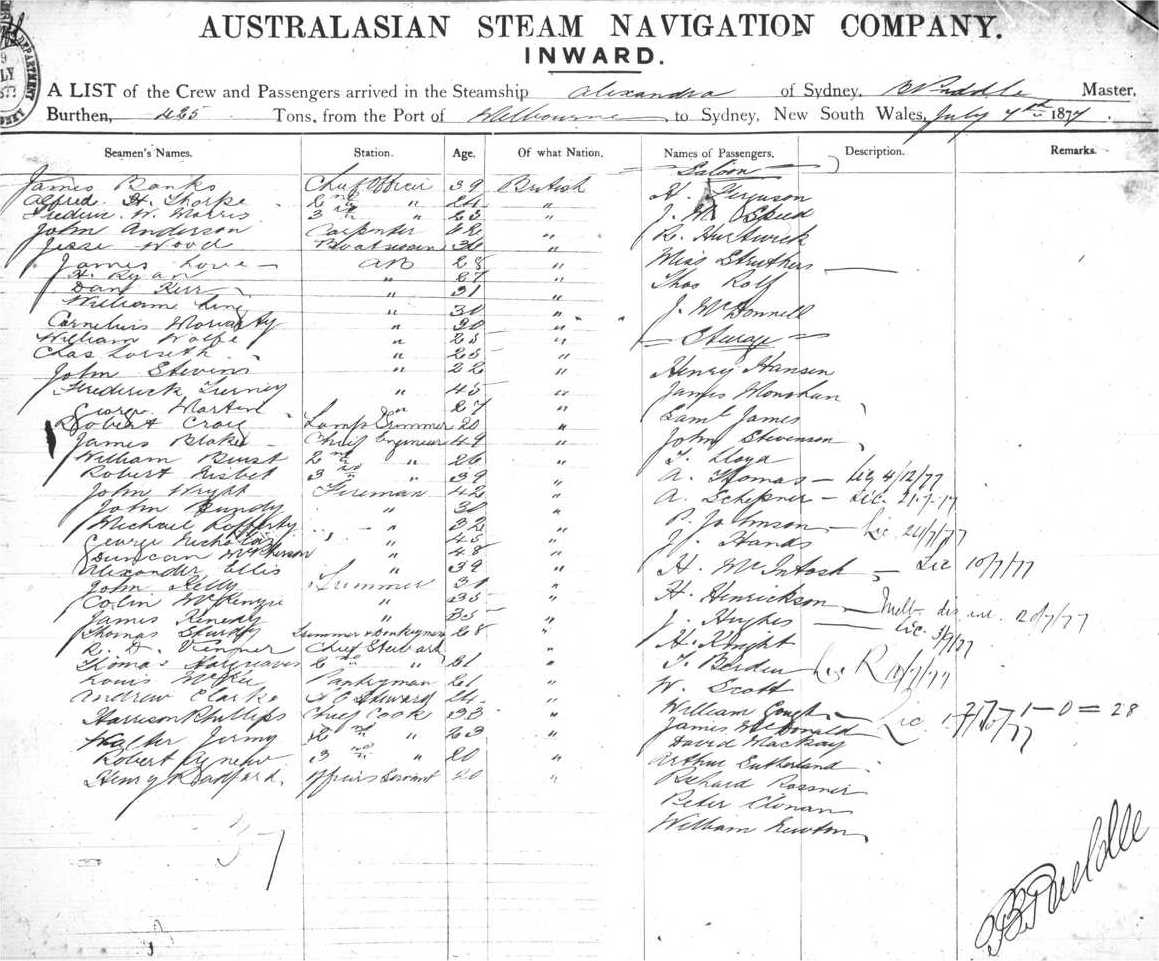 AUSTRALASIAN STEAM NAVIGATION COMPANY.
INWARD.
A LIST of the Crew and Passengers arrived in the Steamship Alexandra of Sydney, B Puddle Master,
Burthen, 425 Tons, from the Port of Melbourne to Sydney, New South Wales, July 7th 1877
Seamen's Names. Station. Age. Of what Nation. Names of Passengers. Description. Remarks.
Saloon
James Banks Chief Officer 39 British H. Ferguson
Alfred. H. Thorpe 2nd " 24 "
W. Morris 3rd " 23 " J. M
John Anderson Carpenter 42 " R.
Jesse Wood Boatswain 36 "
James Love AB 28 " Miss Struthers
H. Ryan " 27 " Thos Rolf
Dan Kerr " 31 "
William King " 30 " J. McDonnell
Cornelius Moriarty " 30 "
William Wolfe " 25 "
Chas " 25 "
John Stevens " 22 " Henry Hansen
Frederick Tierney " 45 " James Monahan
George Martin " 27 " Saml James
Robert Craig Lamp Trimmer 20 "
James Blake Chief Engineer 49 " John Stevenson
William 2nd " 26 " T. Lloyd
Robert Nisbet 3rd " 39 " A. Thomas - 4/12/77
John Wright Fireman 42 " A. - Lic.
John " 30 "
Michael Rafferty " 32 " P. Johnson - Lic 24/7/77
George Nicholas " 45 " J. Hands
Duncan McPherson " 48 "
Alexander Ellis " 39 " H. McIntosh - Lic 10/7/77
John Kelly Trimmer 31 "
Colin McKenzie " 35 " H. Henrickson
James Kenedy " 35 " J. Hughes - Lic. 3/9/77
Thomas Sturdy Trimmer & Donkeyman 28 "
R. D. Chief Steward " H. Knight
Thomas Hargreaves 2nd " 21 " T. - Lic
Louis McKee Pantryman 21 "
Andrew Clarke Steward 24 " W. Scott
Harrison Phillips Chief Cook 33 " William Gough - Lic
Walter 2nd " 23 " James McDonald
David Mackay
Robert Agnew 3rd " 20 " Arthur Sutherland
Henry Officers Servant 20 " Richard Rossner
Peter
William Newton
1 - 0 = 28
37
B Puddle